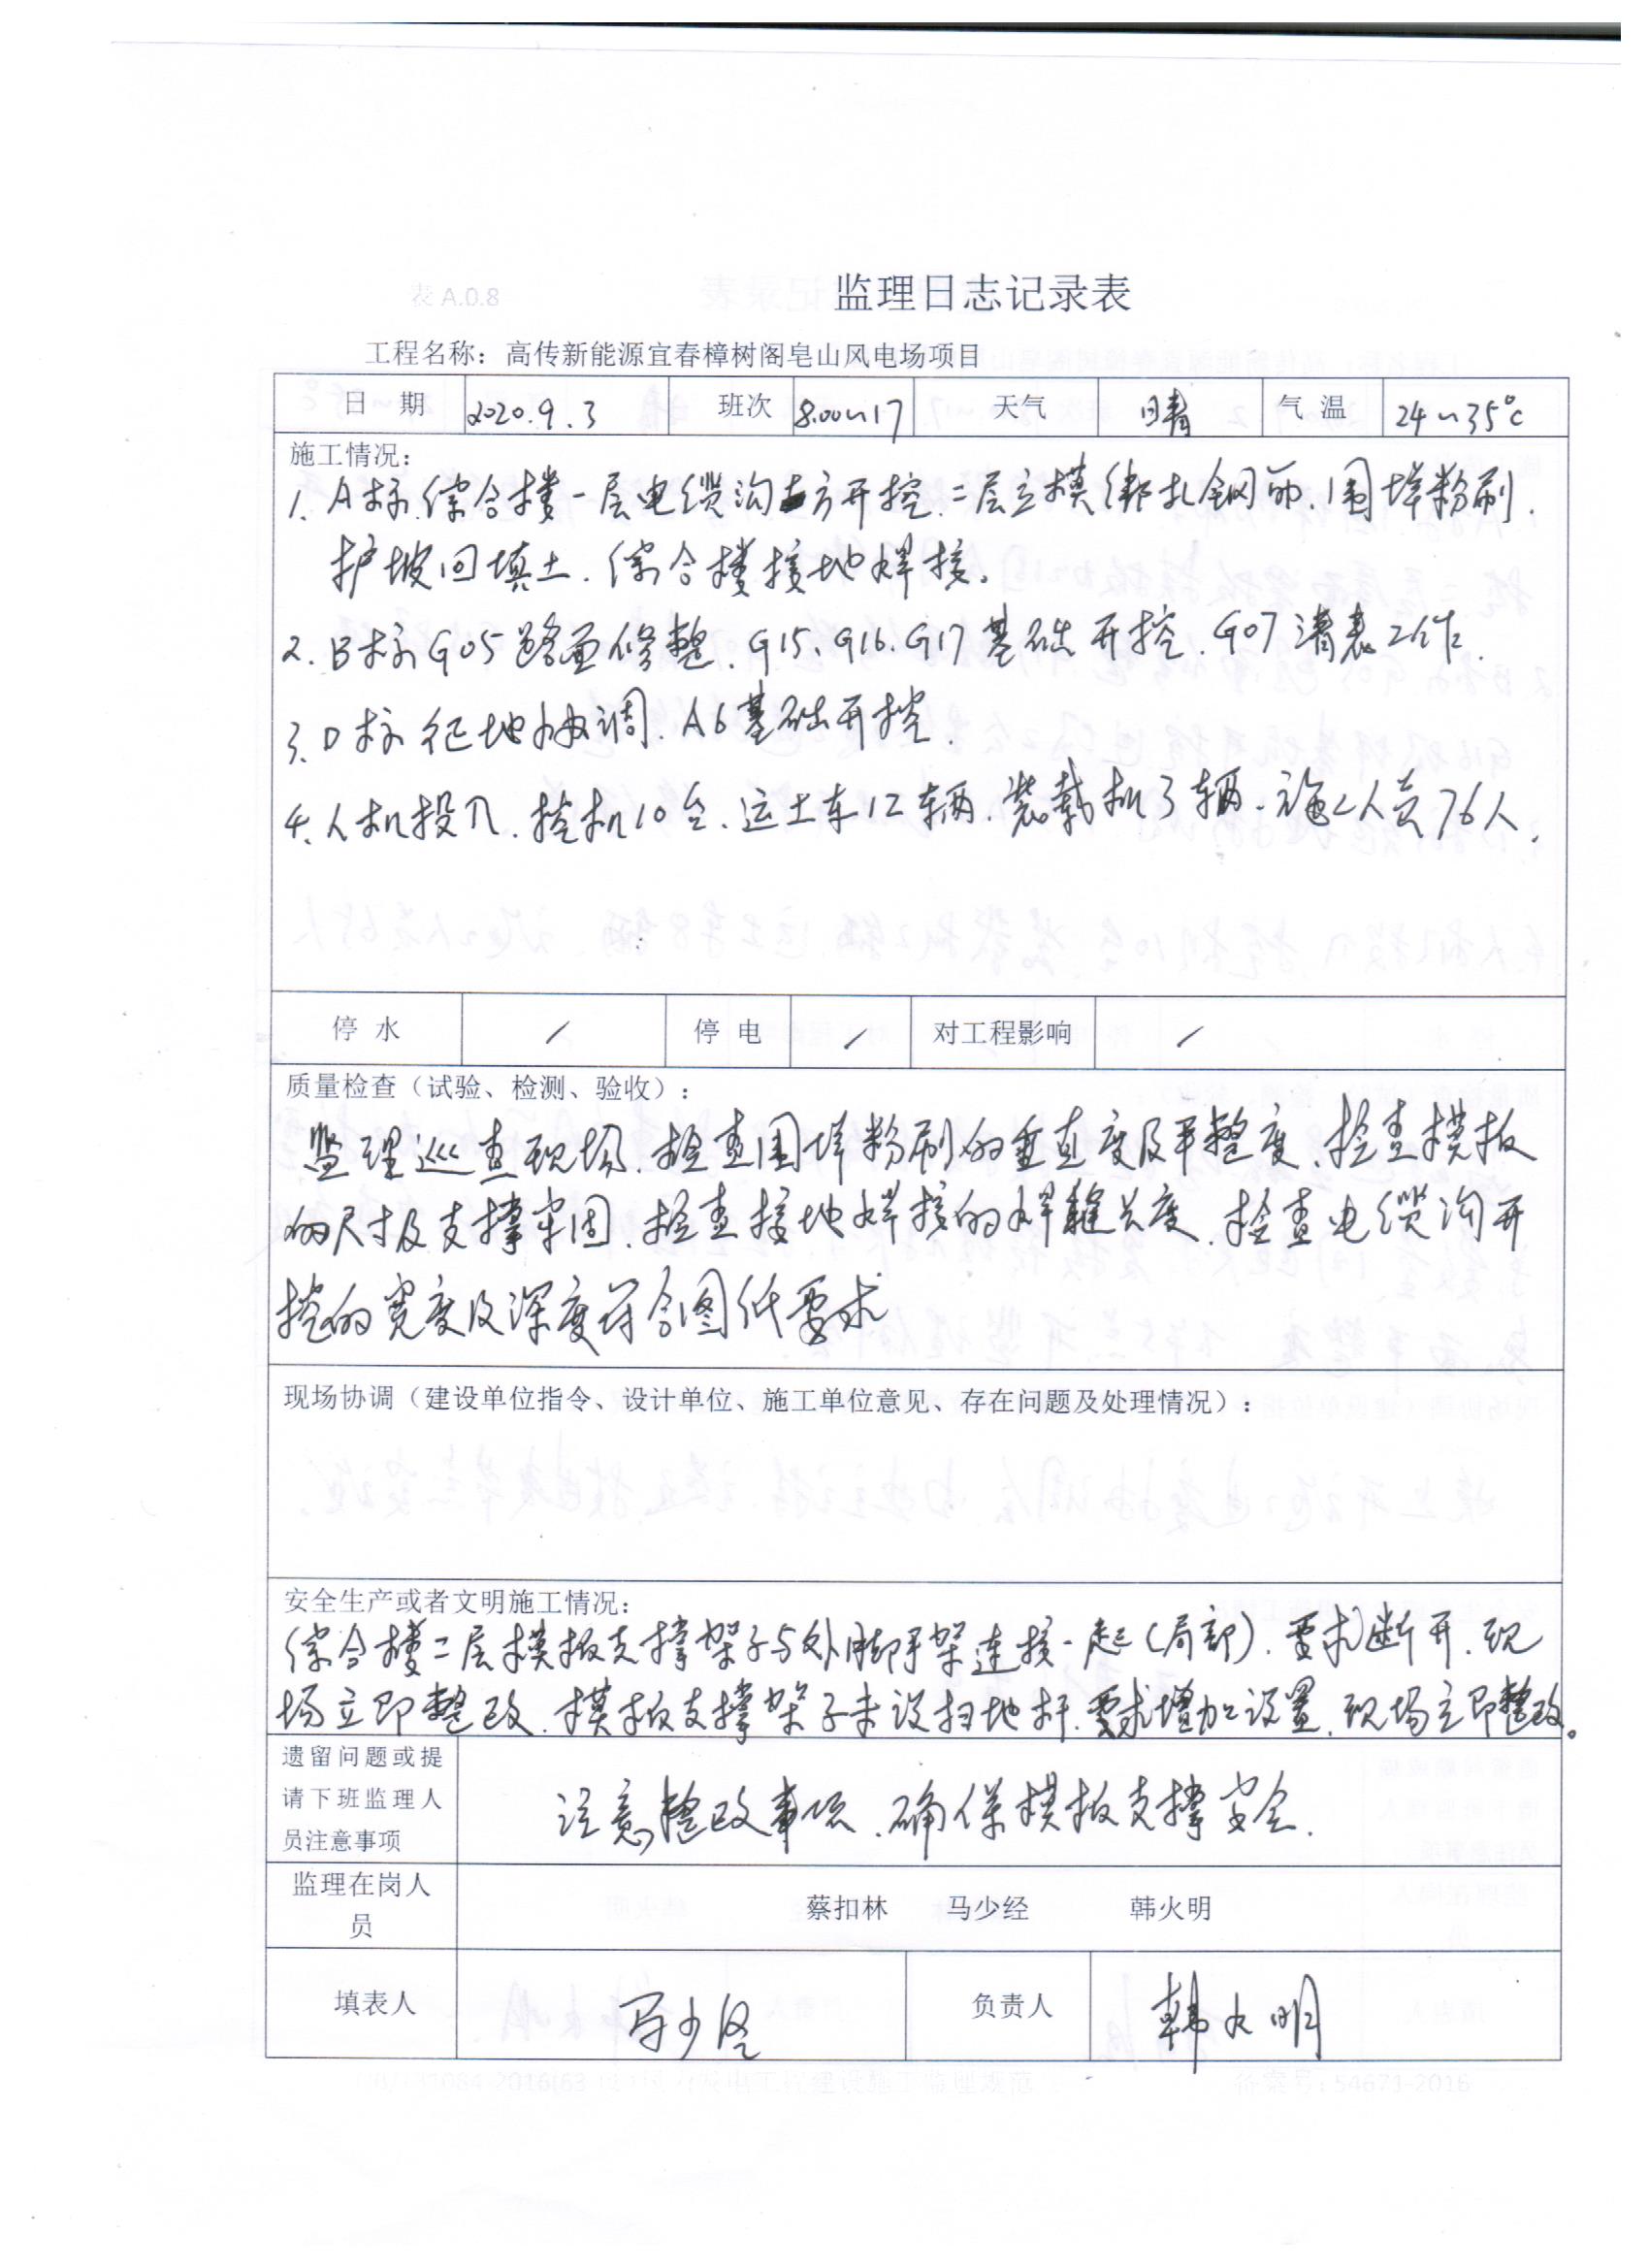 监理日志记录表
表 A.0.8
工程名称：高传新能源宜春樟树阁皂山风电场项目
日 期 2020.9.3 班次 8.00~17 天气 晴 气 温 24~35℃
施工情况：
1、A标.综合楼一层电缆沟土方开挖.二层立模绑扎钢筋.围墙粉刷.
护坡回填土.综合楼接地焊接。
2、B标G05路面修整.G15、G16、G17基础开挖.G07清表工作.
3、D标征地协调.A6基础开挖.
4、人机投入.挖机10台、运土车12辆.装载机3辆.施工人员76人.
停 水 / 停 电 / 对工程影响 /
质量检查（试验、检测、验收）：
监理巡查现场.检查围墙粉刷的垂直度及平整度.检查模板
的尺寸及支撑牢固.检查接地焊接的焊缝长度.检查电缆沟开
挖的宽度及深度符合图纸要求
现场协调（建设单位指令、设计单位、施工单位意见、存在问题及处理情况）：
安全生产或者文明施工情况：
综合楼二层模板支撑架子与外脚手架连接一起(局部).要求断开.现
场立即整改.模板支撑架子未设扫地杆.要求增加设置.现场立即整改。
遗留问题或提
请下班监理人
员注意事项
注意整改事项.确保模板支撑安全.
监理在岗人
员
蔡扣林 马少经 韩火明
填表人 马少经 负责人 韩火明